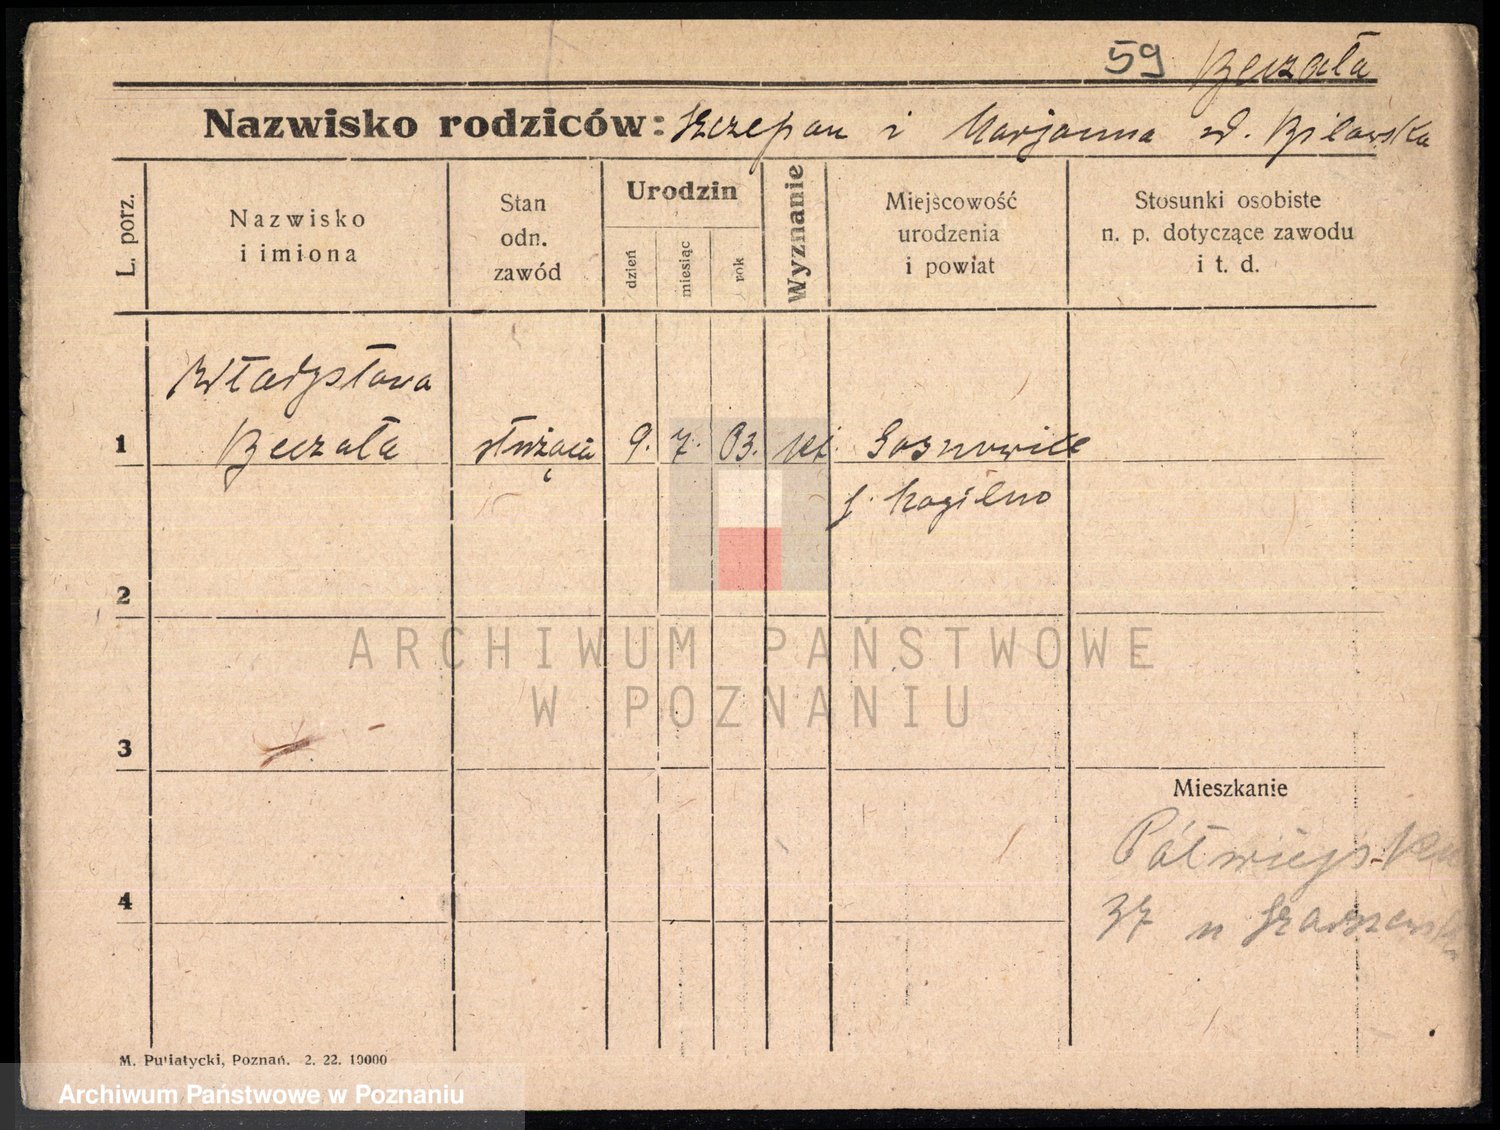 59 Beczała
Nazwisko rodziców: Szczepan i Marjanna zd. Bilawska
L. porz.
Nazwisko
i imiona
Stan
odn.
zawód
Urodzin
dzień
miesiąc
rok
Wyznanie
Miejscowość
urodzenia
i powiat
Stosunki osobiste
n. p. dotyczące zawodu
i t. d.
Władysława
1 Beczała służąca 9. 7. 03. kat. Sosnowice
p. Mogilno
2
ARCHIWUM PAŃSTWOWE
W POZNANIU
3
Mieszkanie
Półwiejska
4
37 u
M. Putiatycki, Poznań. 2. 22. 10000
Archiwum Państwowe w Poznaniu